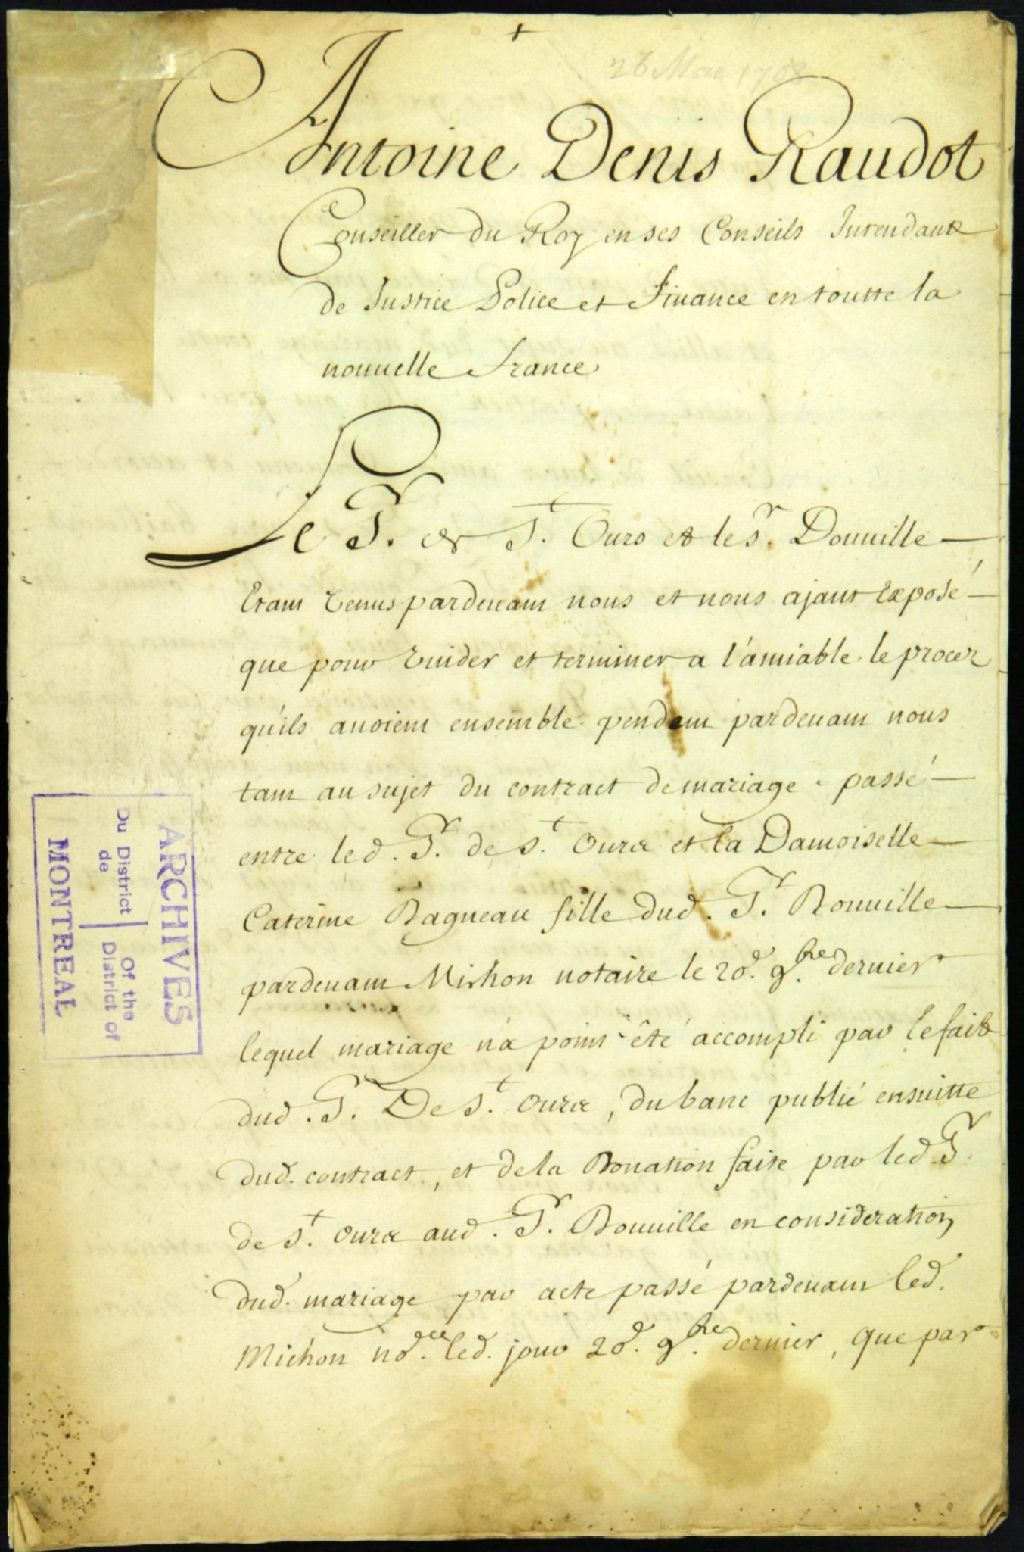 26 Mar 1708
Antoine Denis Raudot
Conseiller du Roy en ses Conseils Intendant
de Justice Police et finance en toutte la
nouuelle france
Le Sr. de St. Ours et le sr. Douuille
Etant venus pardeuant nous et nous ajant Exposé
que pour vuider et terminer a l'amiable le procez
qu'ils auoient ensemble pendant pardeuant nous
tant au sujet du contract de mariage passé
entre led. Sr. de St. Ours et la Damoiselle
Caterine Dagneau fille dud. Sr. Douuille
pardeuant Michon notaire le 20e. 9bre. dernier
lequel mariage n'a point été accompli par le fait
dud. Sr. De St. Ours, du banc publié ensuitte
dud. contract, et de la Donation faite par led. Sr.
de St. Ours aud. Sr. Douuille en consideration
dud. mariage par acte passé pardeuant led.
Michon nore. led. jour 20e. 9bre. dernier, que par
ARCHIVES
Du District
de
Of the
District of
MONTREAL